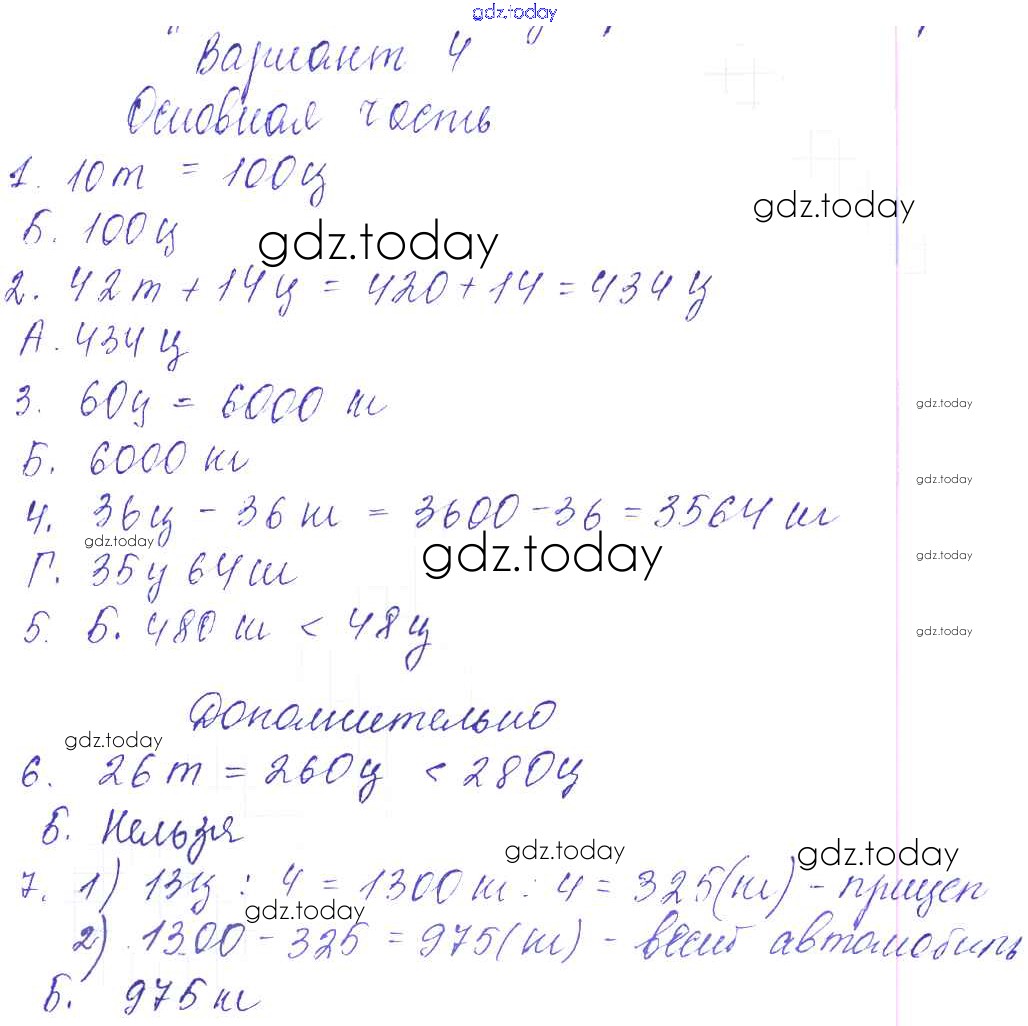 gdz.today
Вариант 4
Основная часть
1. 10 т = 100 ц
Б. 100 ц
gdz.today
gdz.today
2. 42 т + 14 ц = 420 + 14 = 434 ц
А. 434 ц
3. 60 ц = 6000 кг
gdz.today
Б. 6000 кг
gdz.today
4. 36 ц - 36 кг = 3600 - 36 = 3564 кг
gdz.today
gdz.today
gdz.today
Г. 35 ц 64 кг
5. Б. 480 кг < 48 ц
gdz.today
Дополнительно
gdz.today
6. 26 т = 260 ц < 280 ц
Б. Нельзя
gdz.today
gdz.today
7. 1) 13 ц : 4 = 1300 кг : 4 = 325 (кг) - прицеп
gdz.today
2) 1300 - 325 = 975 (кг) - весит автомобиль
Б. 975 кг